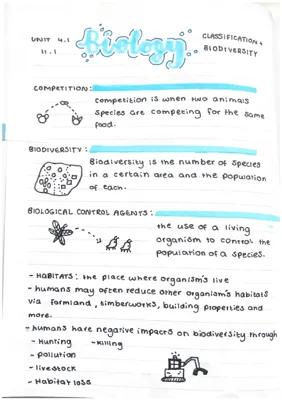 UNIT 4.1
11.1
Biology
CLASSIFICATION +
BIODIVERSITY
COMPETITION:
competition is when two animals
species are competing for the same
food.
BIODIVERSITY:
Biodiversity is the number of species
in a certain area and the population
of each.
BIOLOGICAL CONTROL AGENTS:
the use of a living
organism to control the
population of a species.
- HABITATS: the place where organism's live
- humans may often reduce other organism's habitats
via farmland, timberworks, building properties and
more.
- humans have negative impacts on biodiversity through
- Hunting - killing
- pollution
- livestock
- Habitat lose